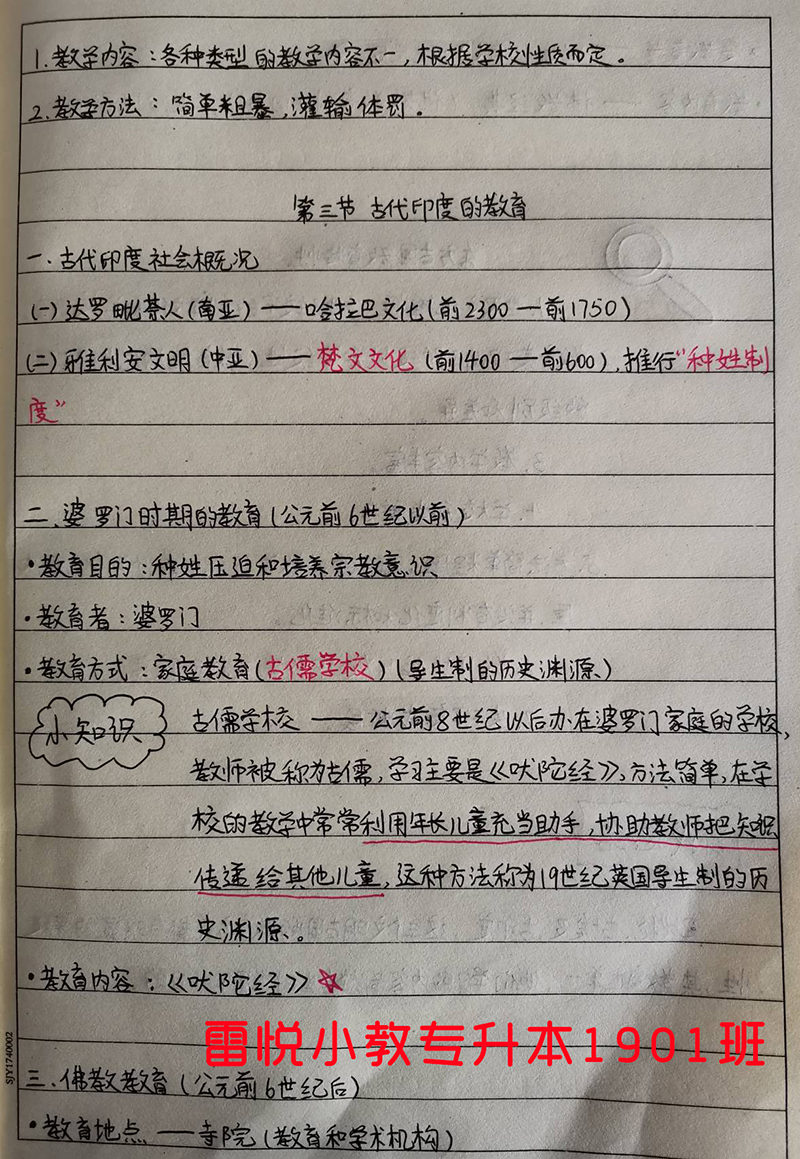 1.教学内容:各种类型的教学内容不一,根据学校性质而定。
2.教学方法:简单粗暴,灌输体罚。
第三节 古代印度的教育
一.古代印度社会概况
(一)达罗毗荼人(南亚)——哈拉巴文化(前2300—前1750)
(二)雅利安文明(中亚)——梵文文化(前1400—前600),推行"种姓制
度"
二.婆罗门时期的教育(公元前6世纪以前)
·教育目的:种姓压迫和培养宗教意识
·教育者:婆罗门
·教育方式:家庭教育(古儒学校)(导生制的历史渊源、)
小知识
古儒学校——公元前8世纪以后办在婆罗门家庭的学校,
教师被称为古儒,学习主要是《吠陀经》,方法简单,在学
校的教学中常常利用年长儿童充当助手,协助教师把知识
传递给其他儿童,这种方法称为19世纪英国导生制的历
史渊源、。
·教育内容:《吠陀经》☆
雷悦小教专升本1901班
三.佛教教育(公元前6世纪后)
·教育地点——寺院(教育和学术机构)
SJY1740002